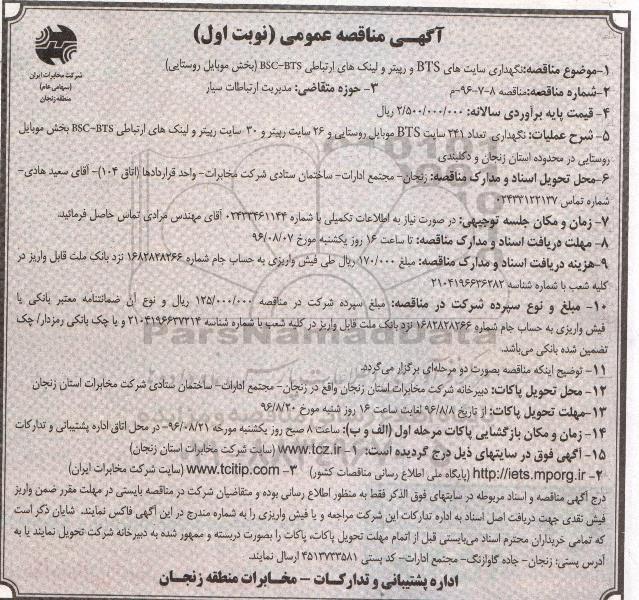 آگهی مناقصه عمومی (نوبت اول)
شرکت مخابرات ایران
(سهامی عام)
منطقه زنجان
۱-موضوع مناقصه:نگهداری سایت های BTS و ریپیتر و لینک های ارتباطی BSC-BTS (بخش موبایل روستایی)
۲-شماره مناقصه:مناقصه ۸-۷-۹۶-م ۳- حوزه متقاضی: مدیریت ارتباطات سیار
۴- قیمت پایه برآوردی سالانه: ۲/۵۰۰/۰۰۰/۰۰۰ ریال
۵- شرح عملیات: نگهداری تعداد ۲۴۱ سایت BTS موبایل روستایی و ۲۶ سایت ریپیتر و ۳۰ سایت ریپیتر و لینک های ارتباطی BSC-BTS بخش موبایل
روستایی در محدوده استان زنجان و دکلبندی
۶-محل تحویل اسناد و مدارک مناقصه: زنجان- مجتمع ادارات- ساختمان ستادی شرکت مخابرات- واحد قراردادها (اتاق ۱۰۴)- آقای سعید هادی-
شماره تماس ۰۲۴۳۳۱۲۲۱۳۷
۷- زمان و مکان جلسه توجیهی: در صورت نیاز به اطلاعات تکمیلی با شماره ۰۲۴۳۳۴۶۱۱۴۴ آقای مهندس مرادی تماس حاصل فرمائید.
۸- مهلت دریافت اسناد و مدارک مناقصه: تا ساعت ۱۶ روز یکشنبه مورخ ۹۶/۰۸/۰۷
۹-هزینه دریافت اسناد و مدارک مناقصه: مبلغ ۱۷۰/۰۰۰ ریال طی فیش واریزی به حساب جام شماره ۱۶۸۲۸۲۸۲۶۶ نزد بانک ملت قابل واریز در
کلیه شعب با شماره شناسه ۲۱۰۴۱۹۶۶۳۶۲۸۲
۱۰- مبلغ و نوع سپرده شرکت در مناقصه: مبلغ سپرده شرکت در مناقصه ۱۲۵/۰۰۰/۰۰۰ ریال و نوع آن ضمانتنامه معتبر بانکی یا
فیش واریزی به حساب جام شماره ۱۶۸۲۸۲۸۲۶۶ نزد بانک ملت قابل واریز در کلیه شعب با شماره شناسه ۲۱۰۴۱۹۶۶۳۷۲۱۴ و یا چک بانکی رمزدار/ چک
تضمین شده بانکی می‌باشد.
ParsNamadData
۱۱- توضیح اینکه مناقصه بصورت دو مرحله‌ای برگزار می‌گردد.
۱۲- محل تحویل پاکات: دبیرخانه شرکت مخابرات استان زنجان واقع در زنجان- مجتمع ادارات- ساختمان ستادی شرکت مخابرات استان زنجان
۱۳-مهلت تحویل پاکات: از تاریخ ۹۶/۸/۸ لغایت ساعت ۱۶ روز شنبه مورخ ۹۶/۸/۲۰
۱۴- زمان و مکان بازگشایی پاکات مرحله اول (الف و ب): ساعت ۸ صبح روز یکشنبه مورخه ۹۶/۰۸/۲۱- در محل اتاق اداره پشتیبانی و تدارکات
۱۵- آگهی فوق در سایتهای ذیل درج گردیده است: ۱- www.tcz.ir (سایت شرکت مخابرات استان زنجان)
۲- http://iets.mporg.ir (پایگاه ملی اطلاع رسانی مناقصات کشور) ۳- www.tcitip.com (سایت شرکت مخابرات ایران)
درج آگهی مناقصه و اسناد مربوطه در سایتهای فوق الذکر فقط به منظور اطلاع رسانی بوده و متقاضیان شرکت در مناقصه بایستی در مهلت مقرر ضمن واریز
فیش نقدی جهت دریافت اصل اسناد به اداره تدارکات این شرکت مراجعه و یا فیش واریزی را به شماره مندرج در این آگهی فاکس نمایند. شایان ذکر است
که تمامی خریداران محترم اسناد می‌بایستی قبل از اتمام مهلت تحویل پاکات، پاکات را بصورت دربسته و ممهور شده به دبیرخانه شرکت تحویل نمایند یا به
آدرس پستی: زنجان- جاده گاوازنگ- مجتمع ادارات- کد پستی ۴۵۱۳۷۳۳۵۸۱ ارسال نمایند.
اداره پشتیبانی و تدارکات - مخابرات منطقه زنجان